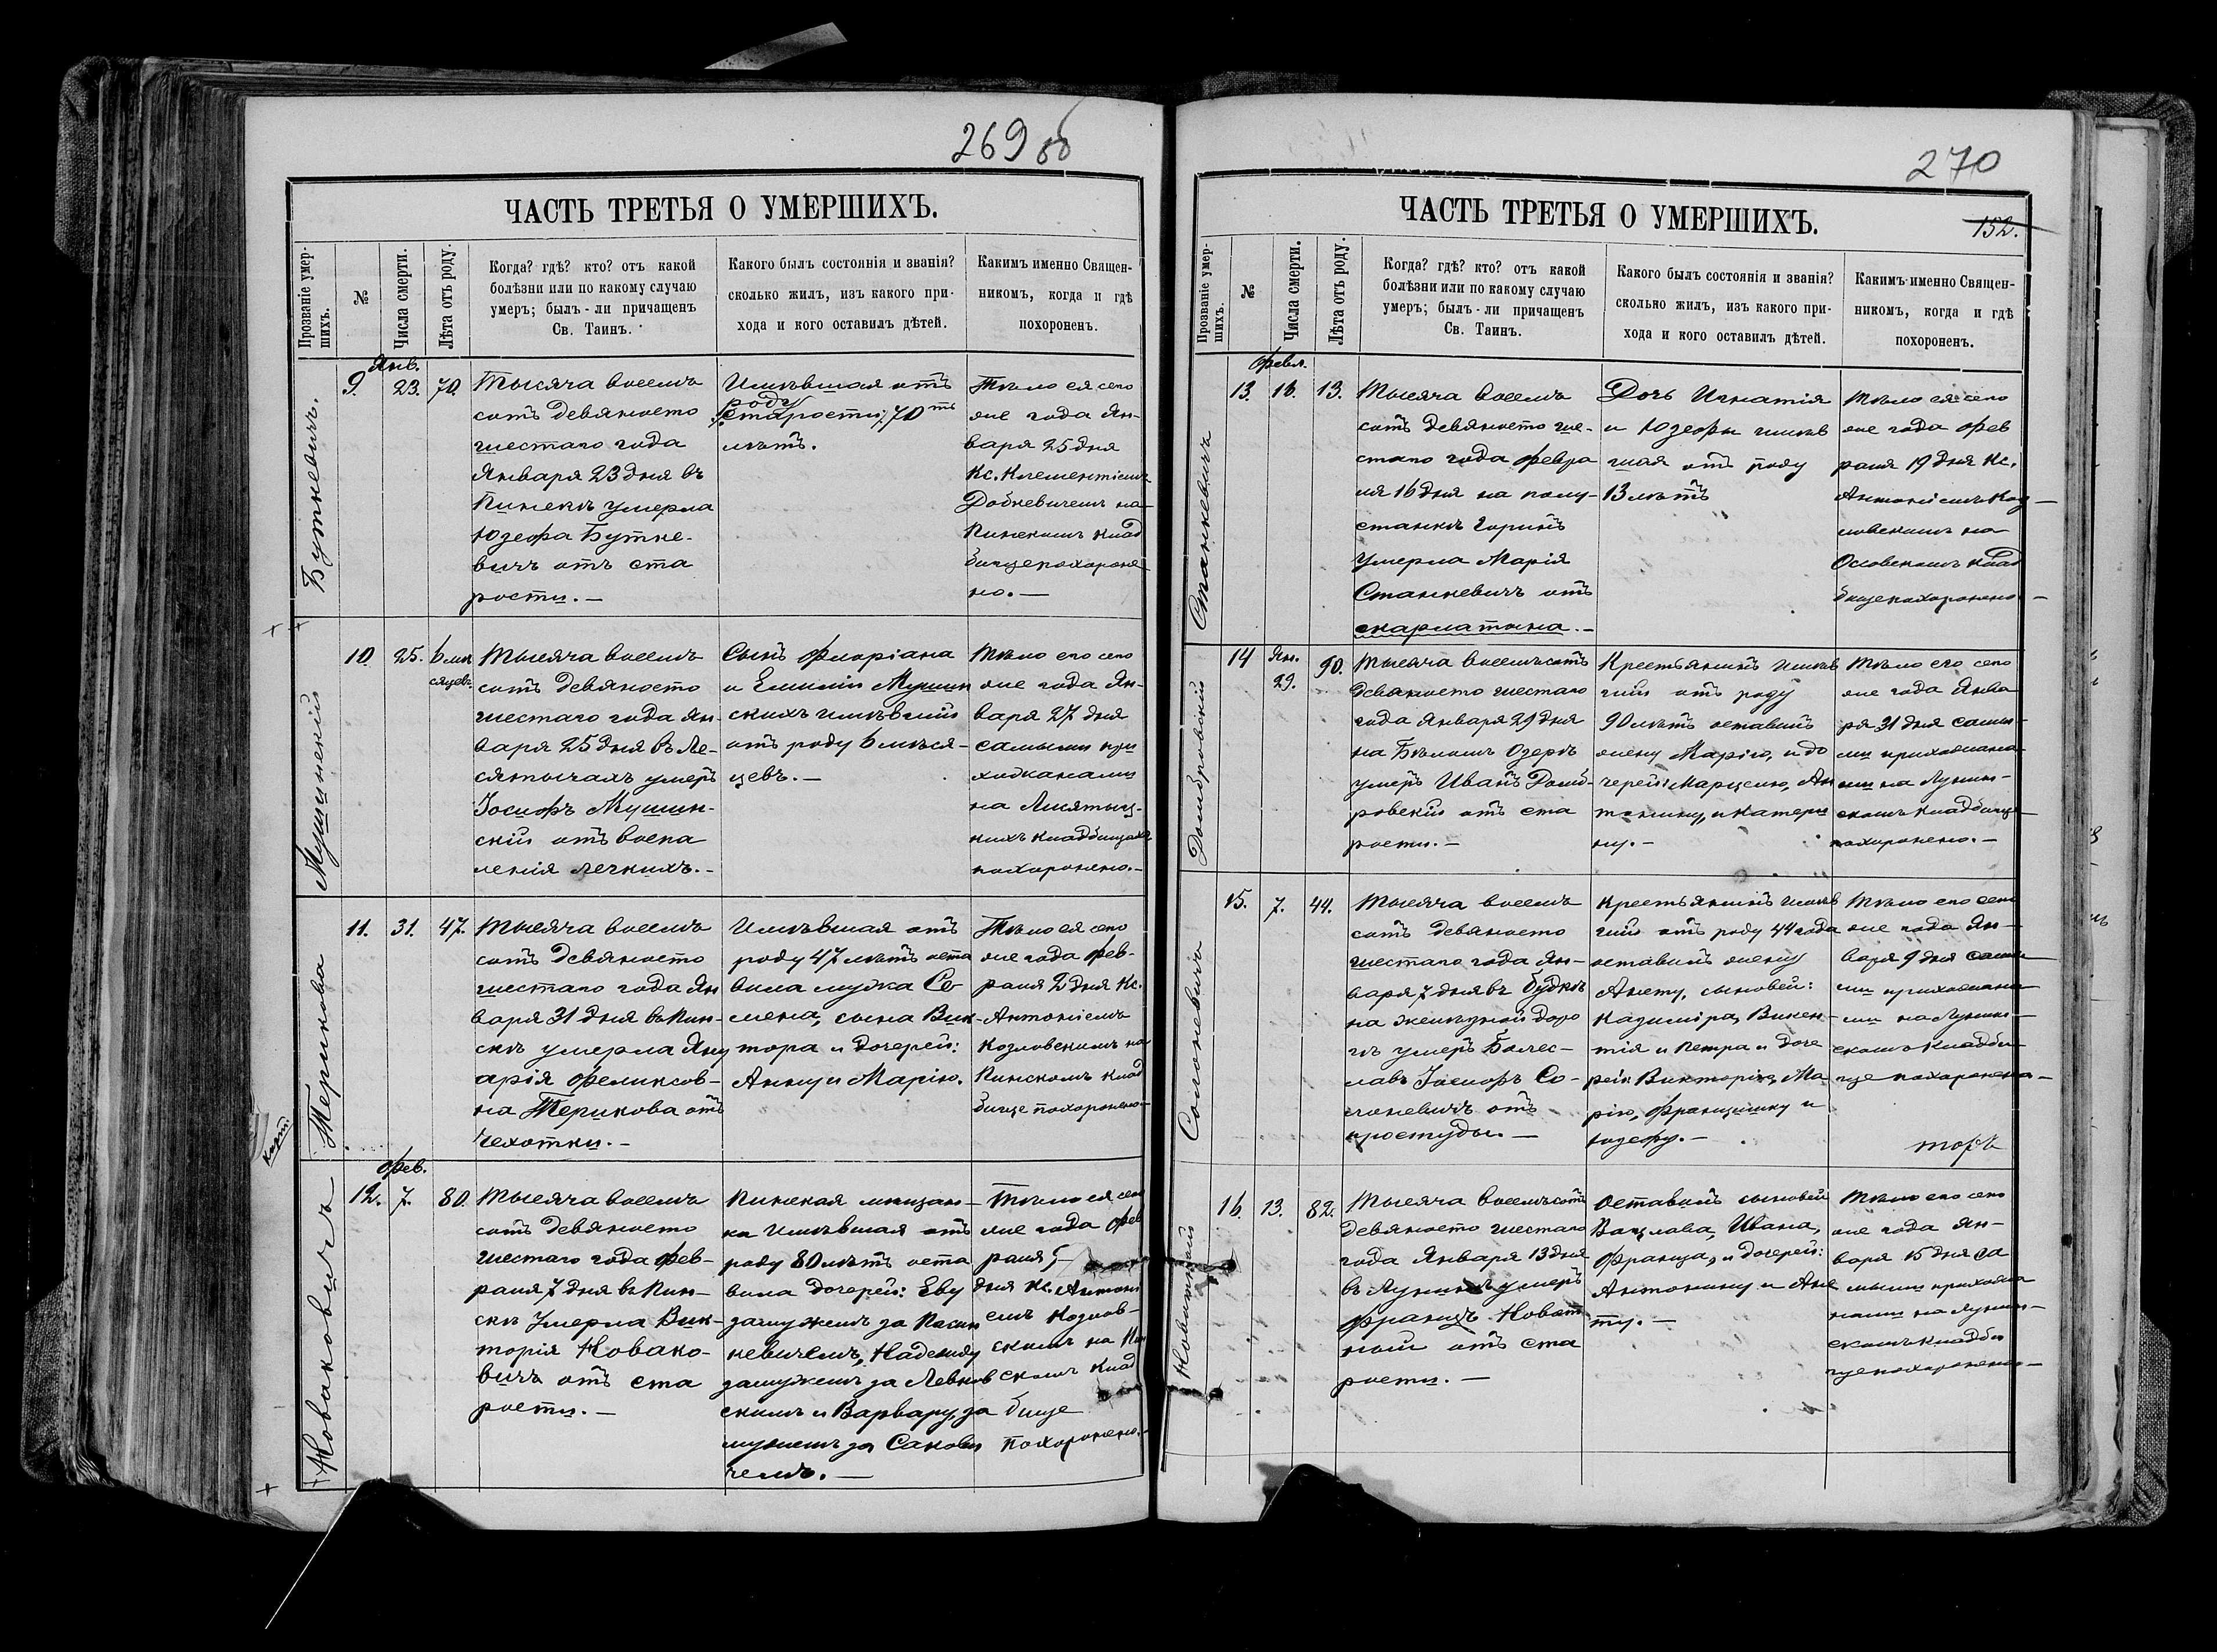 269 об
ЧАСТЬ ТРЕТЬЯ О УМЕРШИХЪ.
Прозваніе умер-
шихъ.
№
Числа смерти.
Лѣта отъ роду.
Когда? гдѣ? кто? отъ какой
болѣзни или по какому случаю
умеръ; былъ-ли причащенъ
Св. Таинъ.
Какого былъ состоянія и званія?
сколько жилъ, изъ какого при-
хода и кого оставилъ дѣтей.
Какимъ именно Священ-
никомъ, когда и гдѣ
похороненъ.
Буткевичъ.
9.
Янв.
23.
70.
Тысяча восемь
сотъ девяносто
шестаго года
Января 23 дня въ
Пинскѣ умерла
Юзефа Бутке-
вичъ отъ ста
рости. —
Имѣвшая отъ
роду
старости; 70тъ
лѣтъ.
Тѣло ея сего
же года Ян-
варя 25 дня
Кс. Клементіемъ
Добкевичемъ на
Пинскомъ клад
бище похороне-
но. —
Мушинскій
10.
25.
6 мѣ
сяцевъ.
Тысяча восемь
сотъ девяносто
шестаго года Ян-
варя 25 дня въ Ле-
сятычахъ умеръ
Іосифъ Мушин-
скій отъ воспа
ленія легкихъ. -
Сынъ Флоріана
и Емиліи Мушин
скихъ имѣвшій
отъ роду 6 мѣся-
цевъ. —
Тѣло его сего
же года Ян-
варя 27 дня
самыми при
хожанами
на Лисятыц-
кихъ кладбищахъ
похоронено. -
Терикова
11.
31.
47.
Тысяча восемь
сотъ девяносто
шестаго года Ян
варя 31 дня въ Пин-
скѣ умерла Яну
арія Феликсов-
на Терикова отъ
чехотки. -
Имѣвшая отъ
роду 47 лѣтъ оста
вила мужа Се-
мена, сына Вик-
тора и дочерей:
Анну и Марію.
Тѣло ея сего
же года Фев-
раля 2 дня Кс.
Антоніемъ
Козловскимъ на
Пинскомъ клад
бище похоронено -
карт.
Новаковичъ
12.
Фев.
7.
80.
Тысяча восемь
сотъ девяносто
шестаго года Фев-
раля 7 дня въ Пин-
скѣ умерла Вик-
торія Новако-
вичъ отъ ста
рости. —
Пинская мѣщан-
ка имѣвшая отъ
роду 80 лѣтъ оста
вила дочерей: Еву
замужемъ за
невичемъ, Надежду
замужемъ за Левков
скимъ и Варвару за
мужемъ за Сакови
чемъ. —
Тѣло ея сего
же года Фев
раля
дня Кс. Антоні
емъ Козлов-
скимъ на Пин
скомъ клад
бище
похоронено. -
270
ЧАСТЬ ТРЕТЬЯ О УМЕРШИХЪ.
152.
Прозваніе умер-
шихъ.
№
Числа смерти.
Лѣта отъ роду.
Когда? гдѣ? кто? отъ какой
болѣзни или по какому случаю
умеръ; былъ-ли причащенъ
Св. Таинъ.
Какого былъ состоянія и званія?
сколько жилъ, изъ какого при-
хода и кого оставилъ дѣтей.
Какимъ именно Священ-
никомъ, когда и гдѣ
похороненъ.
Станкевичъ
13.
Февл.
16.
13.
Тысяча восемь
сотъ девяносто ше-
стаго года Февра
ля 16 дня на полу-
станкѣ Горинь
умерла Марія
Станкевичъ отъ
скарлатына. -
Дочь Игнатія
и Юзефы имѣв
шая отъ роду
13 лѣтъ
Тѣло ея сего
же года Фев
раля 19 дня Кс.
Антоніемъ Коз-
ловскимъ на
Осовскомъ клад
бище похоронено -
Домбровскій
14
Ян.
29.
90.
Тысяча восемьсотъ
девяносто шестаго
года Января 29 дня
на Бѣломъ Озерѣ
умеръ Иванъ Домб-
ровскій отъ ста
рости. —
Крестьянинъ имѣв
шій отъ роду
90 лѣтъ оставилъ
жену Марію, и до
черей: Марцелю, Ан
тонину, и Катери
ну. -
Тѣло его сего
же года Янва
ря 31 дня самы-
ми прихожана-
ми на Лунин-
скомъ кладбище
похоронено. —
Солоневичъ
15.
7.
44.
Тысяча восемь
сотъ девяносто
шестаго года Ян-
варя 7 дня въ будкѣ
на желѣзной доро
гѣ умеръ Болес-
лавъ Іосифъ Со-
лоневичъ отъ
простуды. —
Крестьянинъ имѣв
шій отъ роду 44 года
оставилъ жену
Анету, сыновей:
Казиміра, Викен-
тія и Петра и доче
рей: Викторію, Ма-
рію, Францишку и
Юзефу. —
Тѣло его сего
же года Ян-
варя 9 дня самы-
ми прихожана
ми на Лунин-
скомъ кладби-
ще похоронено -
16.
13.
82.
Тысяча восемьсотъ
девяносто шестаго
года Января 13 дня
въ Лунинѣ умеръ
Францъ
отъ ста
рости. —
Оставилъ сыновей
Вацлава, Ивана,
Франца, и дочерей:
Антонину и Ане
ту. —
Тѣло его сего
же года Ян-
варя 15 дня са
мыми прихожа
нами на Лунин-
скомъ кладби
ще похоронено -